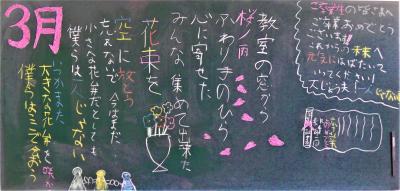 3月
教室の窓から
桜ノ雨
ふわりてのひら
心に寄せた
みんな集めて出来た
花束を
空に放とう
忘れないで 今はまだ…
小さな花弁だとしても
僕らは一人じゃない
いつかまた
大きな花弁を咲かせ
僕らはここで会おう
ご卒業おめでとう
ございます
これからの未来へ
元気にはばたいて
いってください!